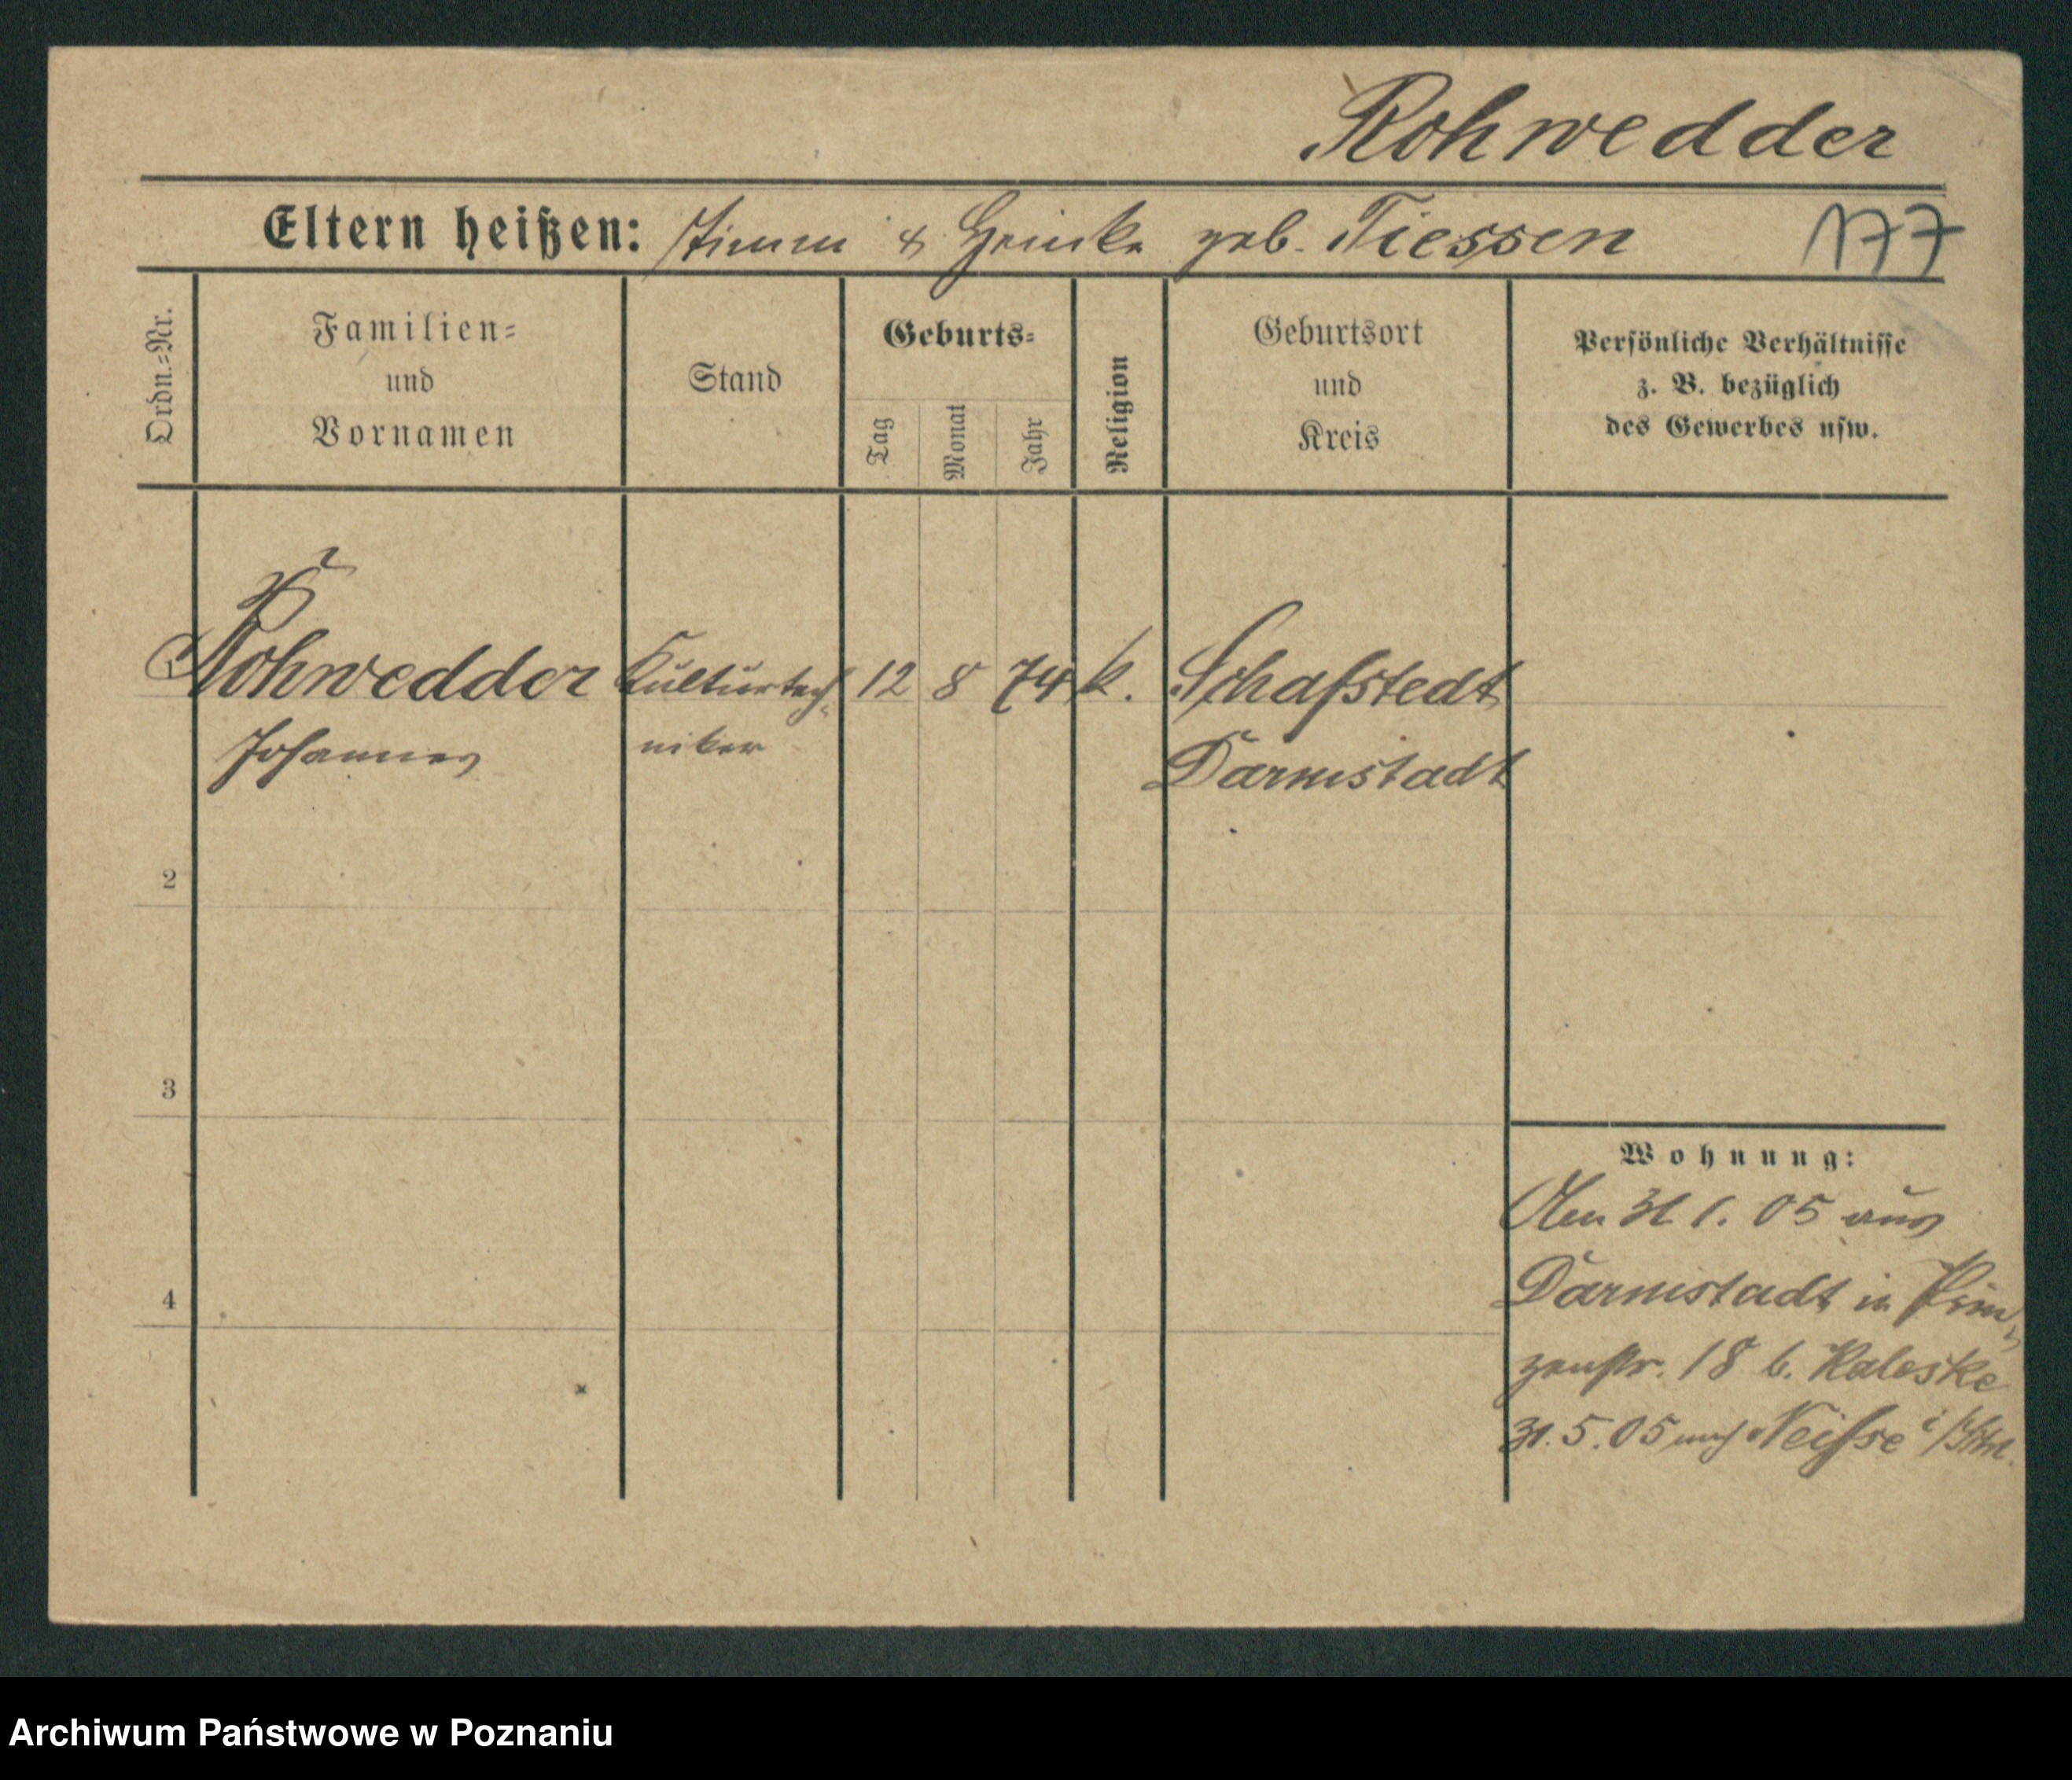 Rohwedder
Eltern heißen: Timm & Heinke geb. Tiessen
177
Ordn.=Nr.
Familien=
und
Vornamen
Stand
Geburts=
Tag
Monat
Jahr
Religion
Geburtsort
und
Kreis
Persönliche Verhältnisse
z. B. bezüglich
des Gewerbes usw.
1 Rohwedder Kulturtech= 12 8 74 k. Schafstedt
Johannes niker Darmstadt
2
3
4
Wohnung:
Den 31 1. 05 aus
Darmstadt in Prin=
zenstr. 18 b. Kaleske
31. 5. 05 nach Neisse i/Schl.
Archiwum Państwowe w Poznaniu